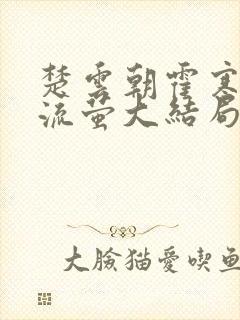 楚雲朝霍寒
流萤大結局
大臉猫愛喫魚